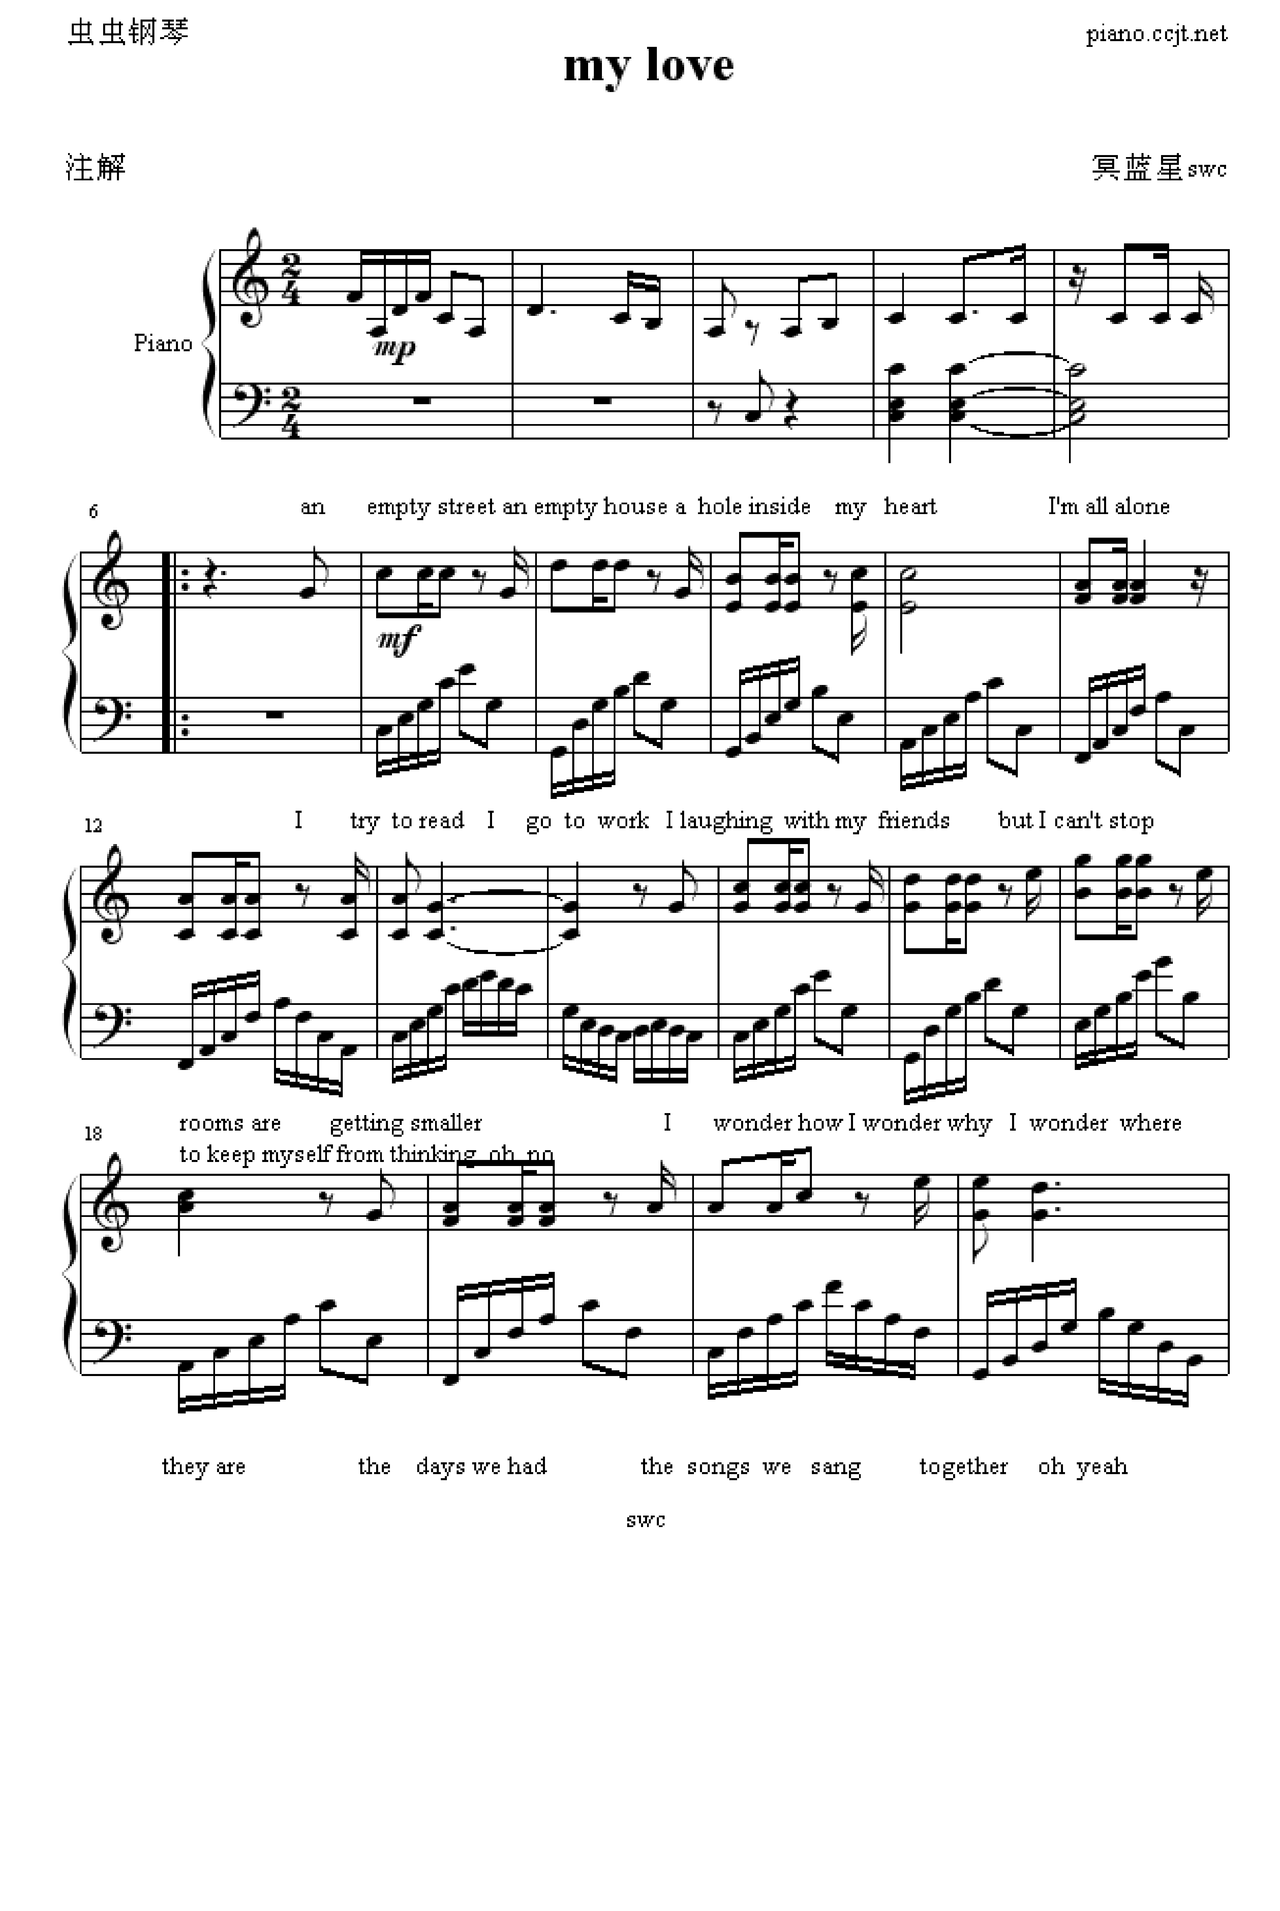 虫虫钢琴
piano.ccjt.net
my love
注解
冥蓝星swc
2 4
Piano
mp
2 4
6
an empty street an empty house a hole inside my heart I'm all alone
mf
12
I try to read I go to work I laughing with my friends but I can't stop
18
rooms are getting smaller I wonder how I wonder why I wonder where
to keep myself from thinking oh no
they are the days we had the songs we sang together oh yeah
swc